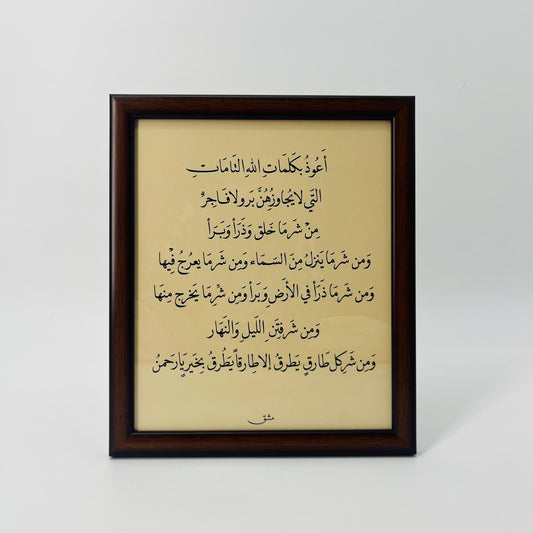 أَعُوذُ بِكَلمَاتِ اللهِ التَامَاتِ
التَي لا يُجاوِزُهِنَّ بَر ولا فَاجِرٌ
مِنْ شَرِ مَا خَلق وَذَرَأ وَبَرأ
وَمِن شَرِ مَا يَنزلُ مِنَ السَمَاء وَمِن شَرِ مَا يعرُجُ فِيْها
وَمِن شَرِ مَا ذَرَأ في الأَرضِ وَبَرأ وَمِن شَرِ مَا يَخرج مِنهَا
وَمِن شَر فِتَن اللَيل وَالنَهَار
وَمِن شَر كل طَارقٍ يَطرقُ إلا طَارقاً يَطْرقُ بِخَير يَا رَحمنُ
مشق